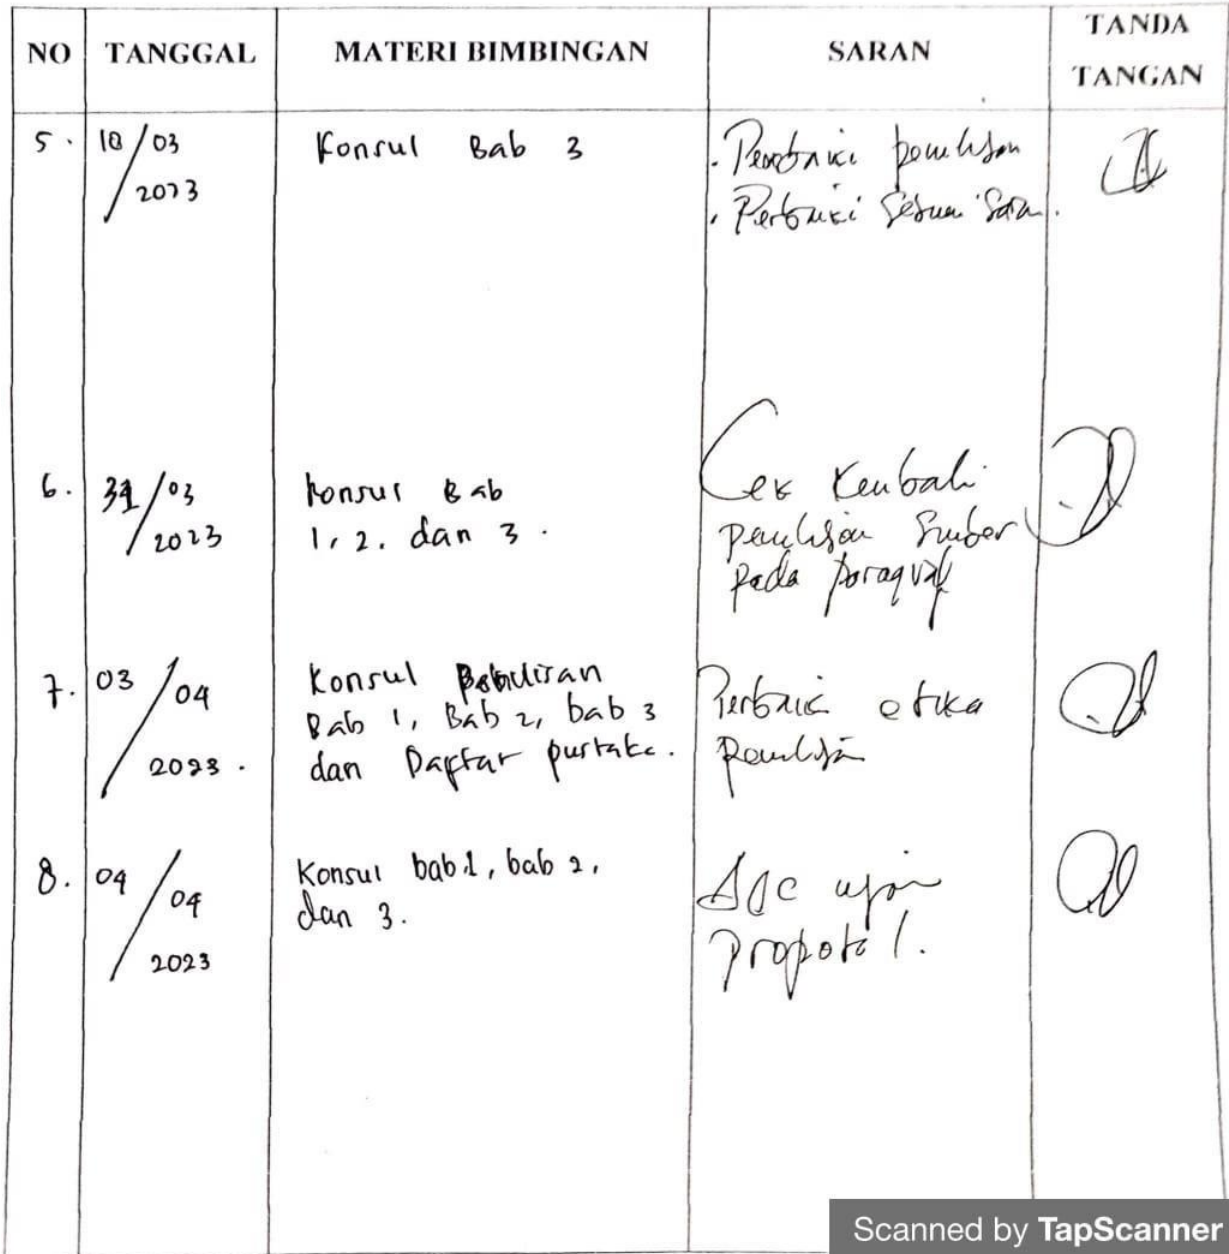 NO TANGGAL MATERI BIMBINGAN SARAN TANDA TANGAN
5. 10/03/2023 Konsul Bab 3
. Perbaiki penulisan
. Perbaiki sesuai saran.
6. 31/03/2023 Konsul Bab
1, 2, dan 3.
Cek kembali
penulisan sumber
pada paragraf
7. 03/04/2023. Konsul
Bab 1, Bab 2, bab 3
dan Daftar pustaka.
Perbaiki etika
8. 04/04/2023 Konsul bab 1, bab 2,
dan 3.
Acc ujian
proposal.
Scanned by TapScanner